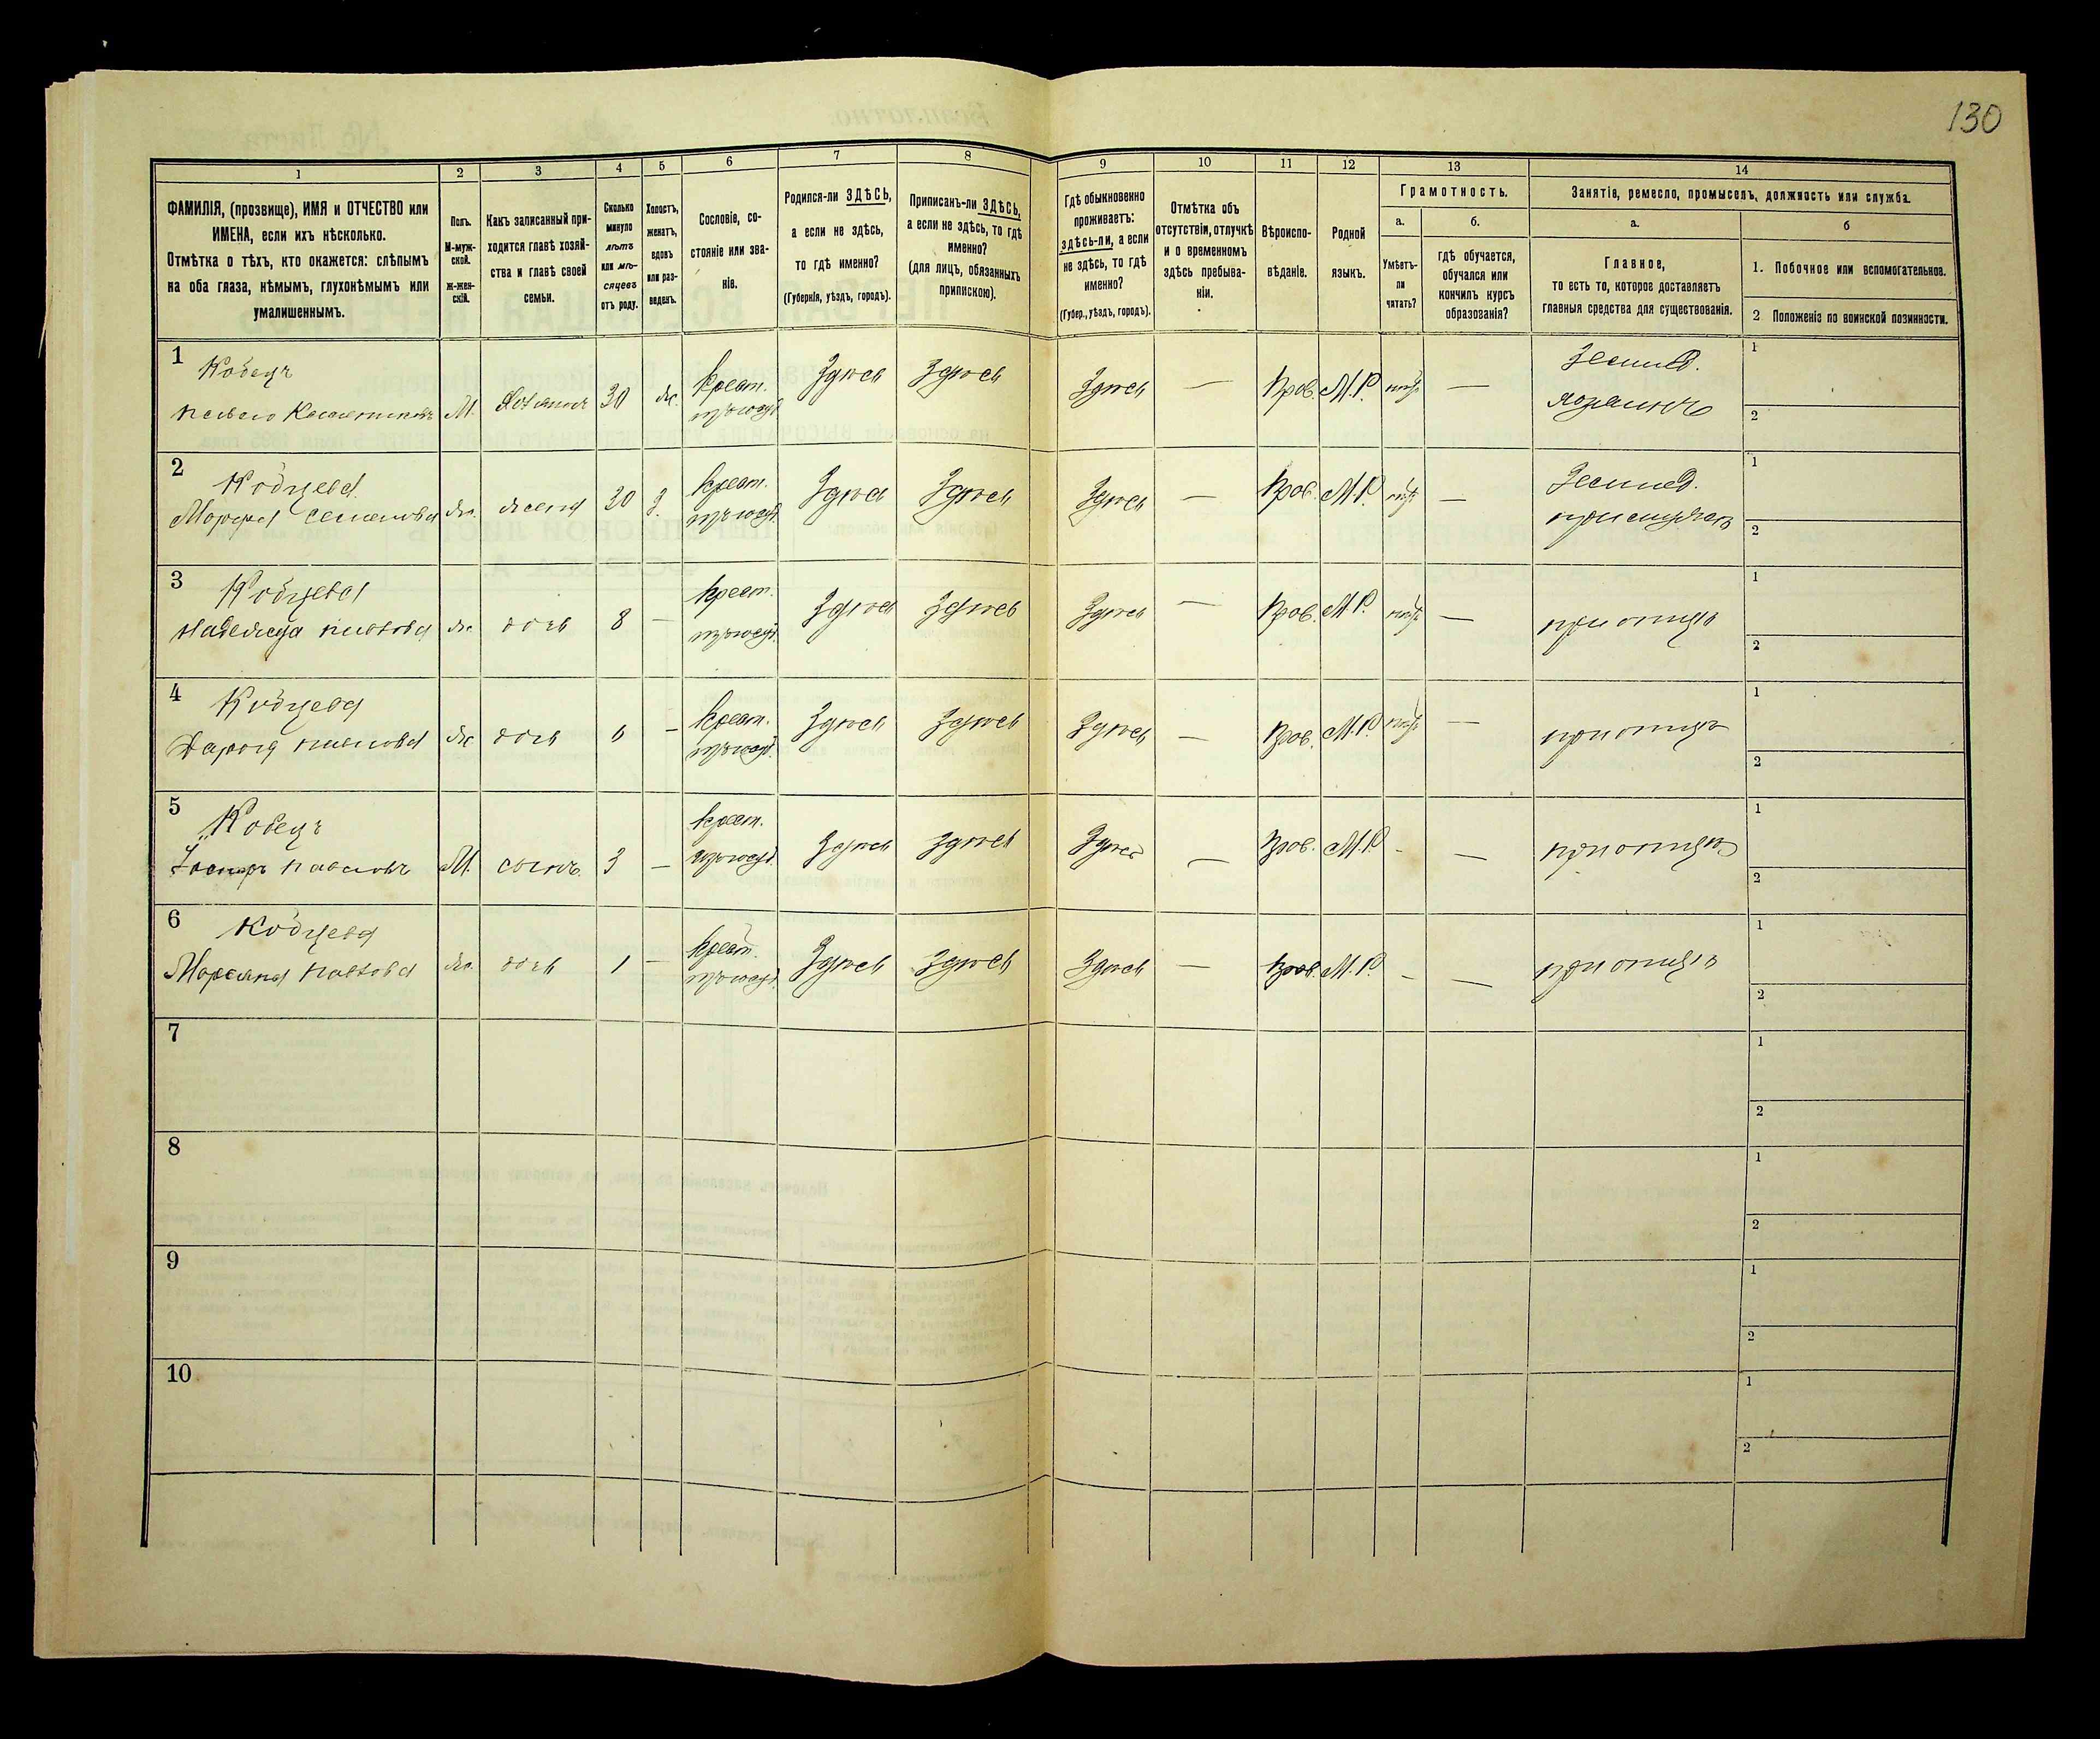 130
1
2
3
4
5
6
7
8
9
10
11
12
13
14
ФАМИЛІЯ, (прозвище), ИМЯ и ОТЧЕСТВО или
ИМЕНА, если ихъ нѣсколько.
Отмѣтка о тѣхъ, кто окажется: слѣпымъ
на оба глаза, нѣмымъ, глухонѣмымъ или
умалишеннымъ.
Полъ.
М-муж-
ской.
ж-жен-
скій.
Какъ записанный при-
ходится главѣ хозяй-
ства и главѣ своей
семьи.
Сколько
минуло
лѣтъ
или мѣ-
сяцевъ
отъ роду.
Холостъ,
женатъ,
вдовъ
или раз-
веденъ.
Сословіе, со-
стояніе или зва-
ніе.
Родился-ли ЗДѢСЬ,
а если не здѣсь,
то гдѣ именно?
(Губернія, уѣздъ, городъ).
Приписанъ-ли ЗДѢСЬ,
а если не здѣсь, то гдѣ
именно?
(для лицъ, обязанныхъ
припискою).
Гдѣ обыкновенно
проживаетъ:
здѣсь-ли, а если
не здѣсь, то гдѣ
именно?
(Губер., уѣздъ, городъ).
Отмѣтка объ
отсутствіи, отлучкѣ
и о временномъ
здѣсь пребыва-
ніи.
Вѣроиспо-
вѣданіе.
Родной
языкъ.
Грамотность.
а.
Умѣетъ-
ли
читать?
б.
гдѣ обучается,
обучался или
кончилъ курсъ
образованія?
Занятіе, ремесло, промыселъ, должность или служба.
а.
Главное,
то есть то, которое доставляетъ
главныя средства для существованія.
б
1. Побочное или вспомогательное.
2 Положеніе по воинской повинности.
1
Кобецъ
М. 30 ж. Крест. Здѣсь Здѣсь Здѣсь — Прав. М.Р. —
Землед.
хозяинъ
1
2
2
Кобцева
Марфа Семенова ж. жена 30 З. Крест. Здѣсь Здѣсь Здѣсь — Прав. М.Р. —
Землед.
при мужѣ
1
2
3
Кобцева
Надежда Павлова ж. дочь 8 — Крест. Здѣсь Здѣсь Здѣсь — Прав. М.Р. —
при отцѣ
1
2
4
Кобцева
Дарья Павлова ж. дочь 6 — Крест. Здѣсь Здѣсь Здѣсь — Прав. М.Р. —
при отцѣ
1
2
5
Кобецъ
Павловъ М. сынъ. 3 — Крест. Здѣсь Здѣсь Здѣсь — Прав. М.Р. - —
при отцѣ
1
2
6
Кобцева
Павлова ж. дочь 1 — Крест. Здѣсь Здѣсь Здѣсь — Прав. М.Р. - —
при отцѣ
1
2
7
1
2
8
1
2
9
1
2
10
1
2